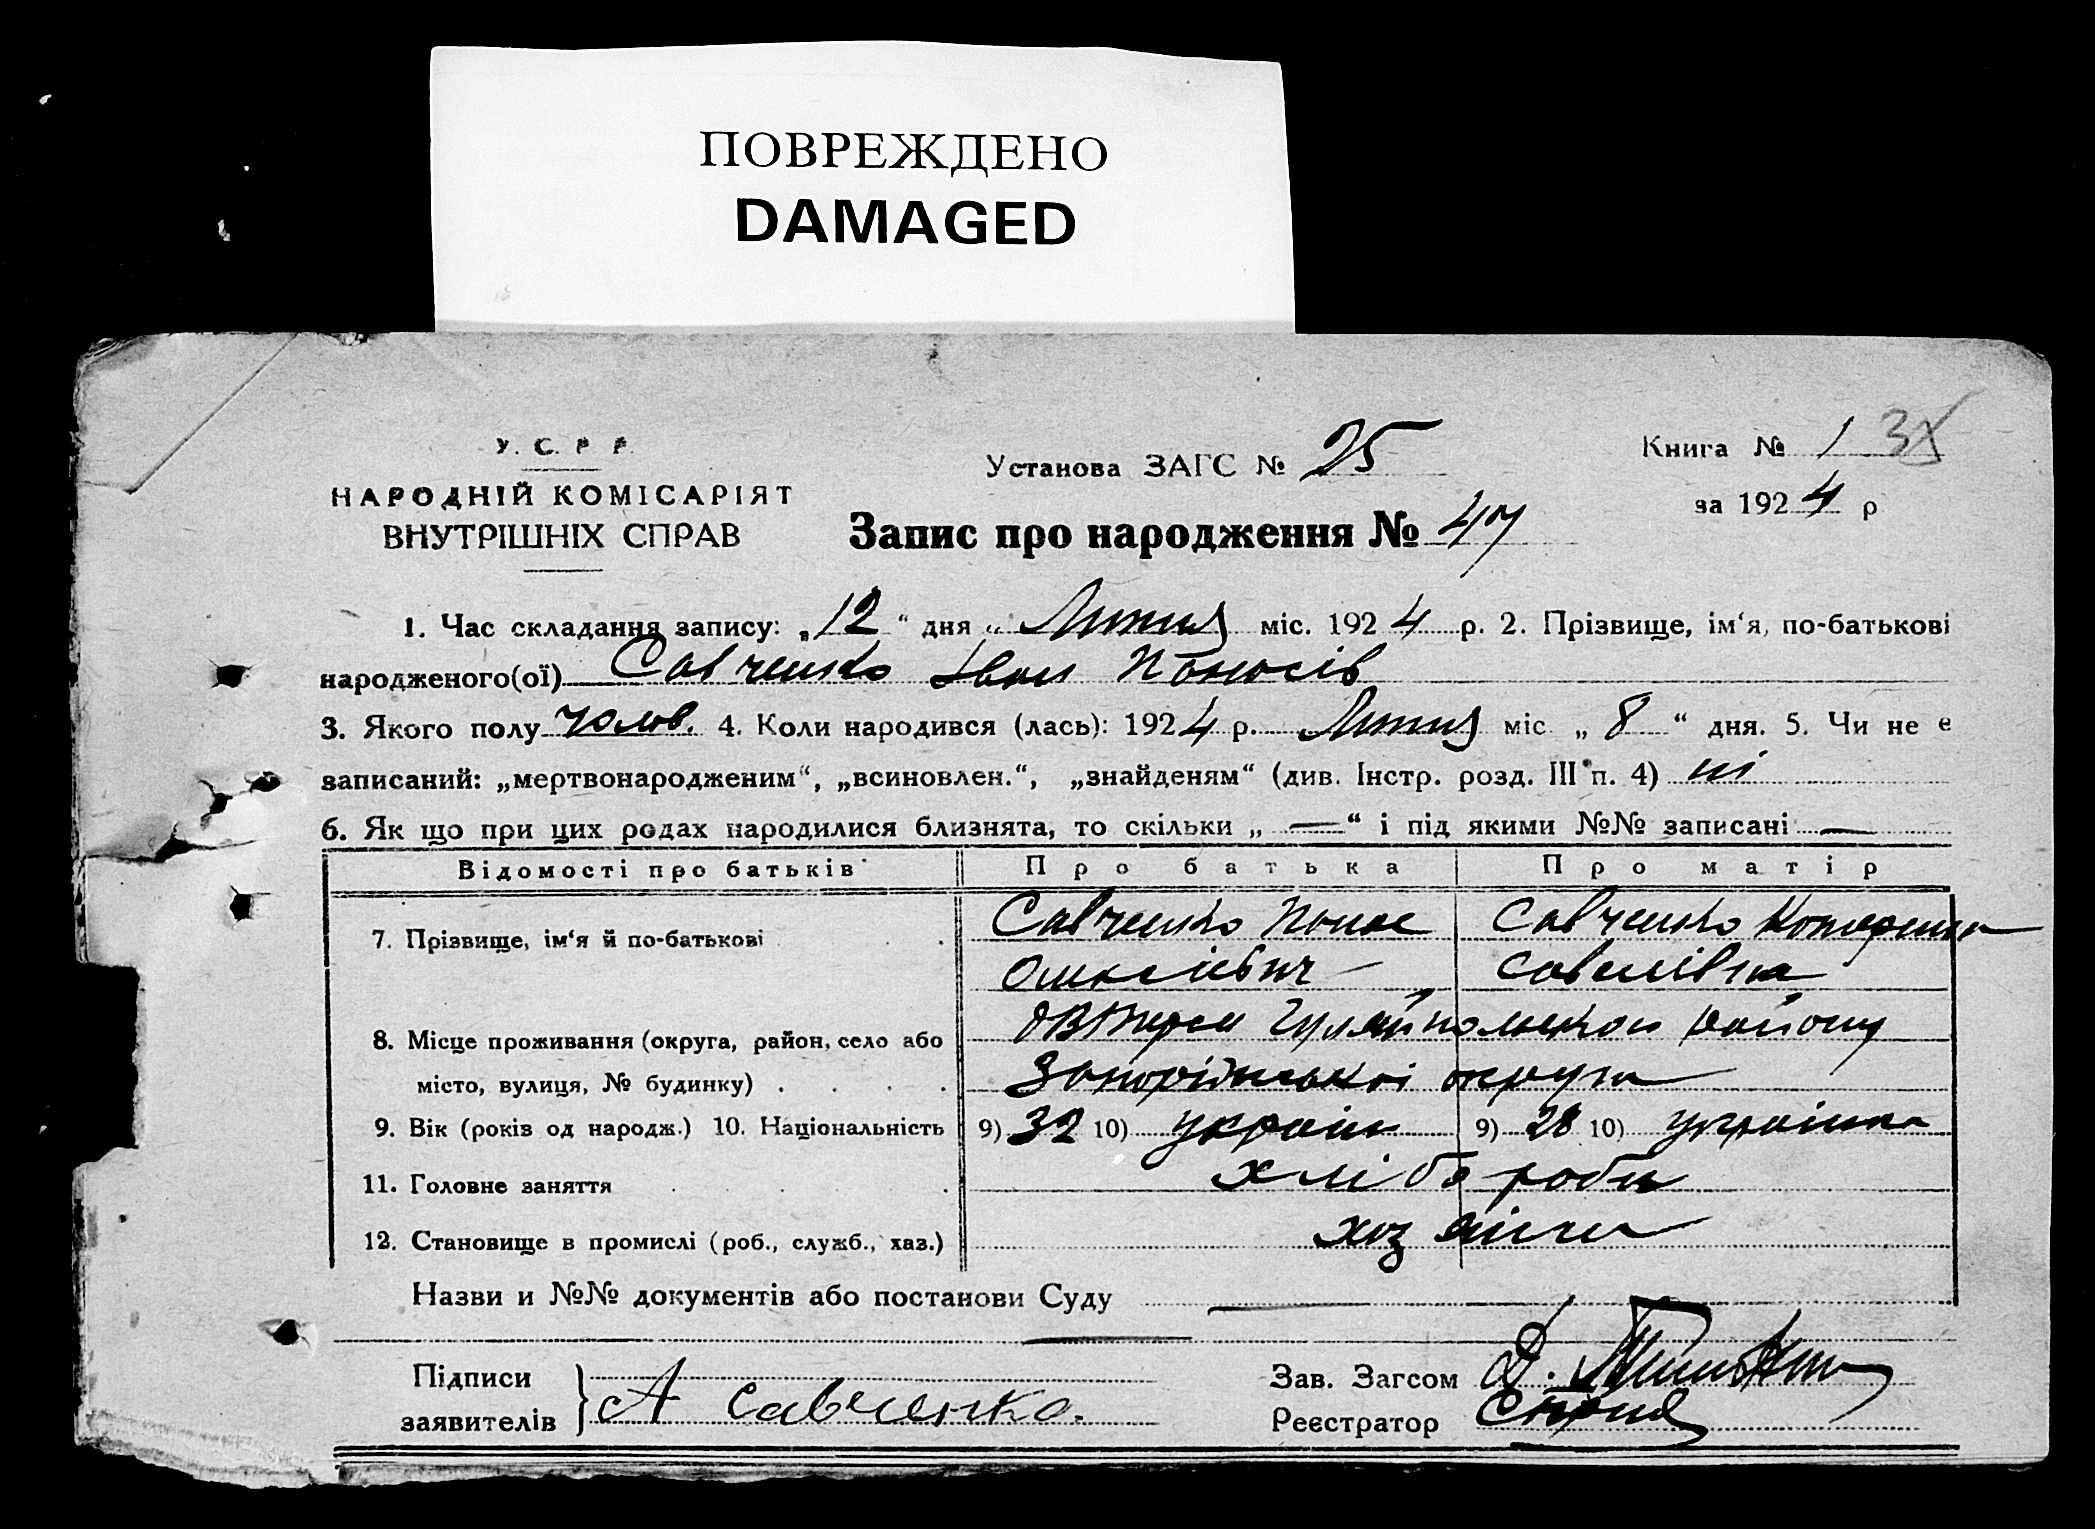 ПОВРЕЖДЕНО
DAMAGED
У. С. Р. Р.
НАРОДНІЙ КОМІСАРІЯТ
ВНУТРІШНІХ СПРАВ
Установа ЗАГС № 25
Книга № 1
за 1924 р
Запис про народження № 47
1. Час складання запису: „12“ дня „ Лютня міс. 1924 р. 2. Прізвище, ім‘я, по-батькові
народженого(ої) Савченко Іван Панасів
3. Якого полу чолов. 4. Коли народився (лась): 1924 р. Лютня міс „ 8 “ дня. 5. Чи не є
записаний: „мертвонародженим“, „всиновлен.“, „знайденям“ (див. Інстр. розд. III п. 4) ні
6. Як що при цих родах народилися близнята, то скільки „ — “ і під якими №№ записані —
Відомості про батьків Про батька Про матір
7. Прізвище, ім‘я й по-батькові Савченко Панас Савченко Катерина
Олексієвич Савелівна
8. Місце проживання (округа, район, село або Гуляйпольского району
місто, вулиця, № будинку) Запоріжської округи
9. Вік (років од народж.) 10. Національність 9) 32 10) україн 9) 28 10) українка
11. Головне заняття хлібороби
12. Становище в промислі (роб., служб., хаз.) хозяіни
Назви и №№ документів або постанови Суду —
Підписи
заявителів А Савченко.
Зав. Загсом Д.
Реєстратор